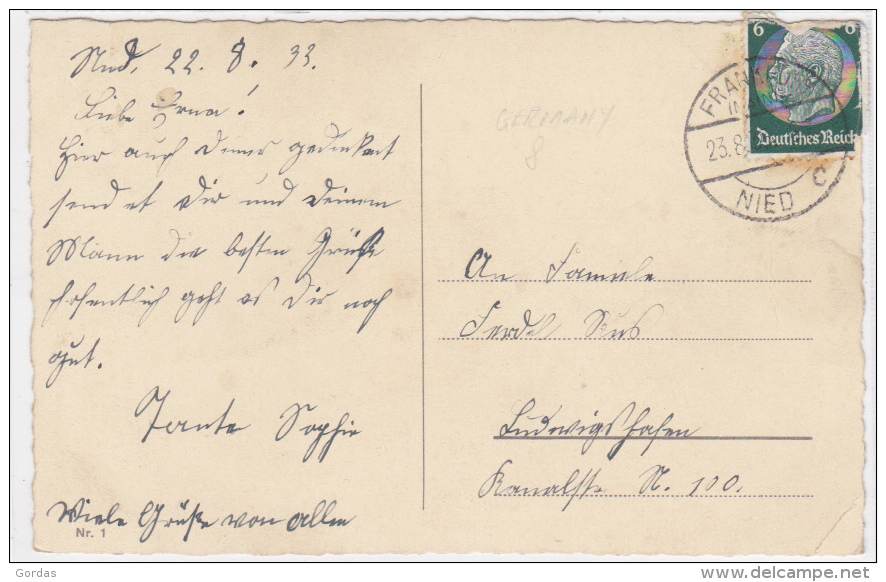 Nied, 22. 8. 33.
Liebe Erna!
Hier auch Deiner gedenkent
sendet Dir und Deinem
Mann die besten Grüße
Hofentlich geht es Dir noch
gut.
Tante Sophie
Viele Grüße von allen
Nr. 1
GERMANY
8
6 6
Deutsches Reich
FRANKFURT
23.8
NIED
C
An Familie
Ferdl
Ludwigshafen
Kanalstr N. 100.
© Gordas
http://www.delcampe.net